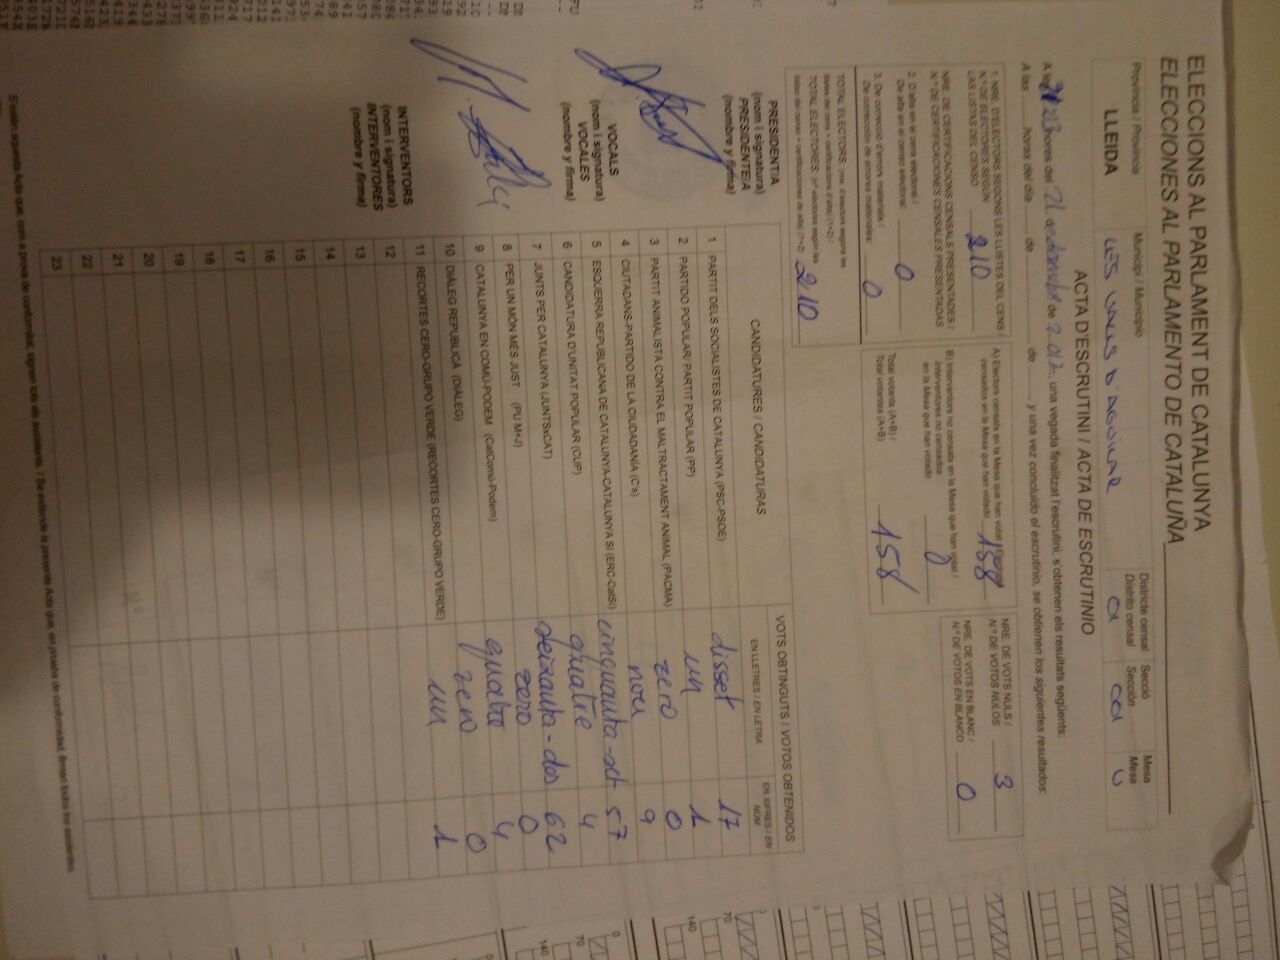 ELECCIONS AL PARLAMENT DE CATALUNYA
ELECCIONES AL PARLAMENTO DE CATALUÑA
Província / Provincia
Municipi / Municipio
Districte censal
Distrito censal
Secció
Sección
Mesa
Mesa
LLEIDA
LES VALLS D'AGUILAR
01
001
U
ACTA D'ESCRUTINI / ACTA DE ESCRUTINIO
A les hores del 21 de desembre de 2.017 una vegada finalitzat l'escrutini, s'obtenen els resultats següents:
A las ........ horas del día ........ de ........ de ........, y una vez concluido el escrutinio, se obtienen los siguientes resultados:
1. NRE. D'ELECTORS SEGONS LES LLISTES DEL CENS /
N.º DE ELECTORES SEGÚN
LAS LISTAS DEL CENSO 210
NRE. DE CERTIFICACIONS CENSALS PRESENTADES /
N.º DE CERTIFICACIONES CENSALES PRESENTADAS
2. D'alta en el cens electoral /
De alta en el censo electoral: 0
3. De correcció d'errors materials /
De corrección de errores materiales: 0
TOTAL ELECTORS: (nre. d'electors segons les
llistes del cens + certificacions d'alta) (1+2) /
TOTAL ELECTORES: (nº electores según las
listas del censo + certificaciones de alta) (1+2) 210
A) Electors censats en la Mesa que han votat /
censados en la Mesa que han votado 158
B) Interventors no censats en la Mesa que han votat /
Interventores no censados
en la Mesa que han votado 0
Total votants (A+B) /
Total votantes (A+B) 158
NRE. DE VOTS NULS /
N.º DE VOTOS NULOS 3
NRE. DE VOTS EN BLANC /
N.º DE VOTOS EN BLANCO 0
PRESIDENT/A
(nom i signatura)
PRESIDENTE/A
(nombre y firma)
VOCALS
(nom i signatura)
VOCALES
(nombre y firma)
INTERVENTORS
(nom i signatura)
INTERVENTORES
(nombre y firma)
CANDIDATURES / CANDIDATURAS
VOTS OBTINGUTS / VOTOS OBTENIDOS
EN LLETRES / EN LETRA
EN XIFRES / EN NÚM
1 PARTIT DELS SOCIALISTES DE CATALUNYA (PSC-PSOE) disset 17
2 PARTIDO POPULAR/ PARTIT POPULAR (PP) un 1
3 PARTIT ANIMALISTA CONTRA EL MALTRACTAMENT ANIMAL (PACMA) zero 0
4 CIUTADANS-PARTIDO DE LA CIUDADANÍA (C's) nou 9
5 ESQUERRA REPUBLICANA DE CATALUNYA-CATALUNYA SÍ (ERC-CatSí) cinquanta-set 57
6 CANDIDATURA D'UNITAT POPULAR (CUP) quatre 4
7 JUNTS PER CATALUNYA (JUNTSxCAT) seixanta-dos 62
8 PER UN MÓN MÉS JUST (PUM+J) zero 0
9 CATALUNYA EN COMÚ-PODEM (CatComú-Podem) quatre 4
10 DIÀLEG REPUBLICÀ (DIÀLEG) zero 0
11 RECORTES CERO-GRUPO VERDE (RECORTES CERO-GRUPO VERDE) un 1
12
13
14
15
16
17
18
19
20
21
22
23
S'estén aquesta Acta que, com a prova de conformitat, signen tots els assistents. / Se extiende la presente Acta que, en prueba de conformidad, firman todos los asistentes.